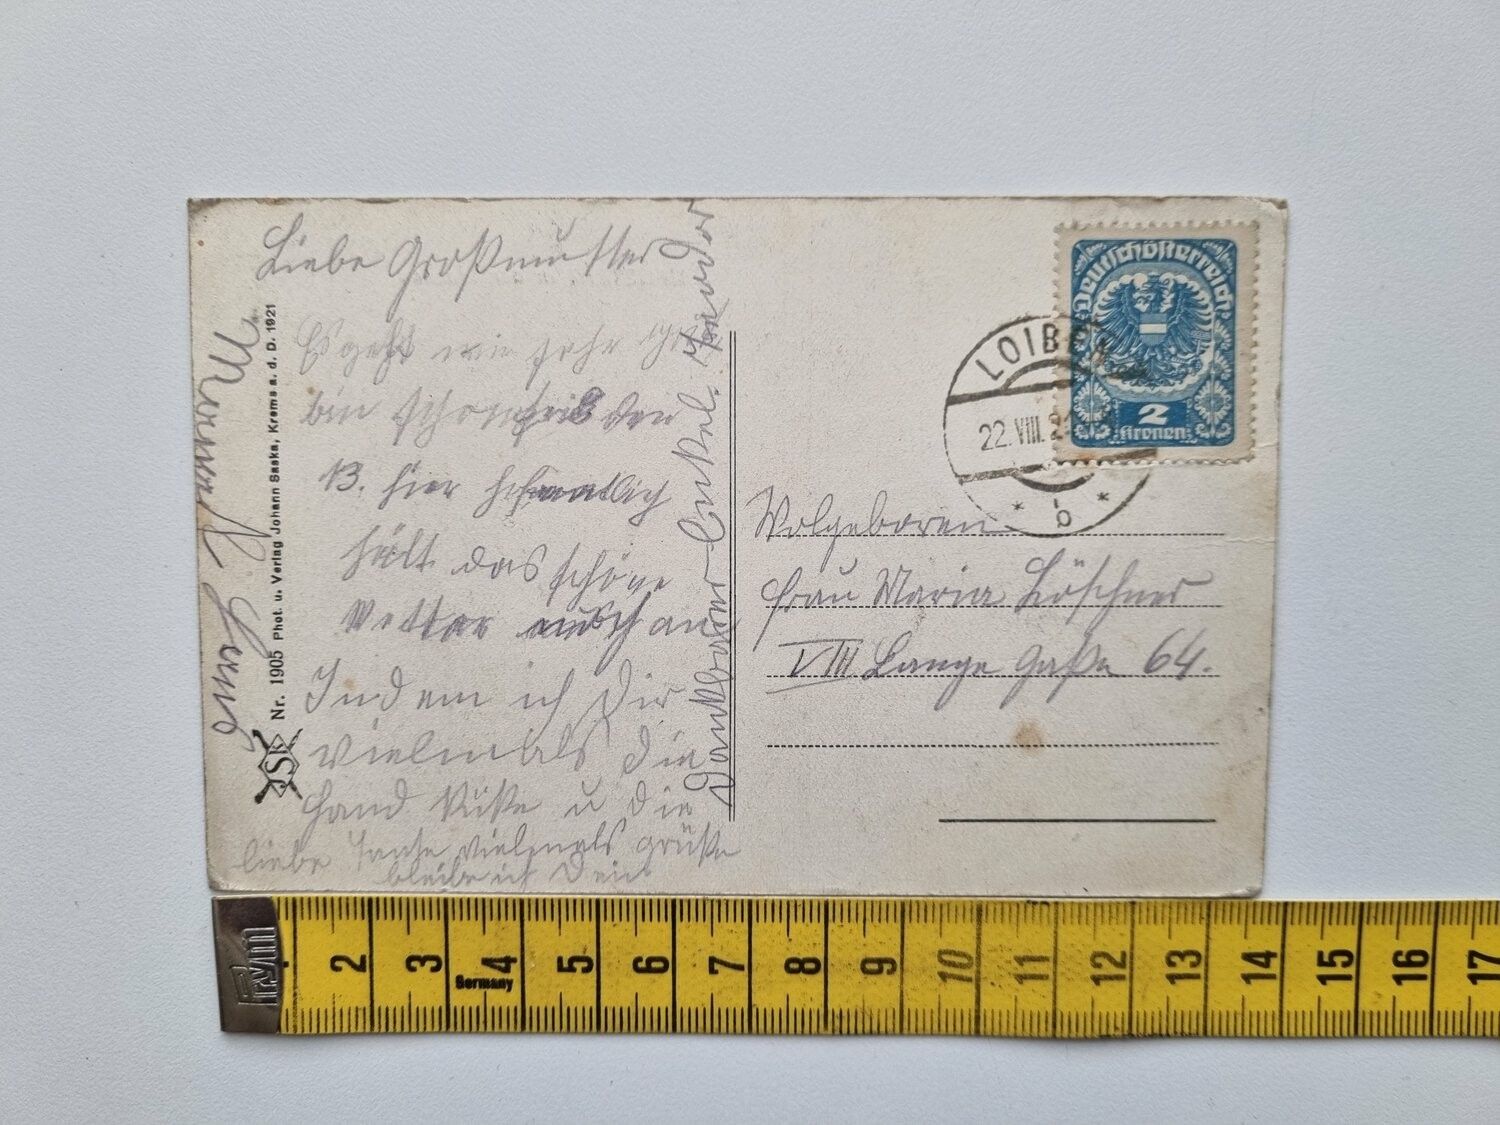 Liebe Großmutter
Es geht mir sehr gut
bin schon seit den
13. hier hofentlich
hält das schöne
Wetter auch an
Indem ich Dir
vielmals die
Hand küße u die
liebe Tante vielmals grüße
bleibe ich Dein
dankbarer Enkel.
Nr. 1905 Phot. u. Verlag Johann Saska, Krems a. d. D. 1921
JSK
Deutschösterreich
2
Kronen
LOIBEN
22. VIII. 21
* b *
Wolgeboren
Frau Maria Löschner
VIII Lange Gaße 64.
Prym
Germany
2 3 4 5 6 7 8 9 10 11 12 13 14 15 16 17